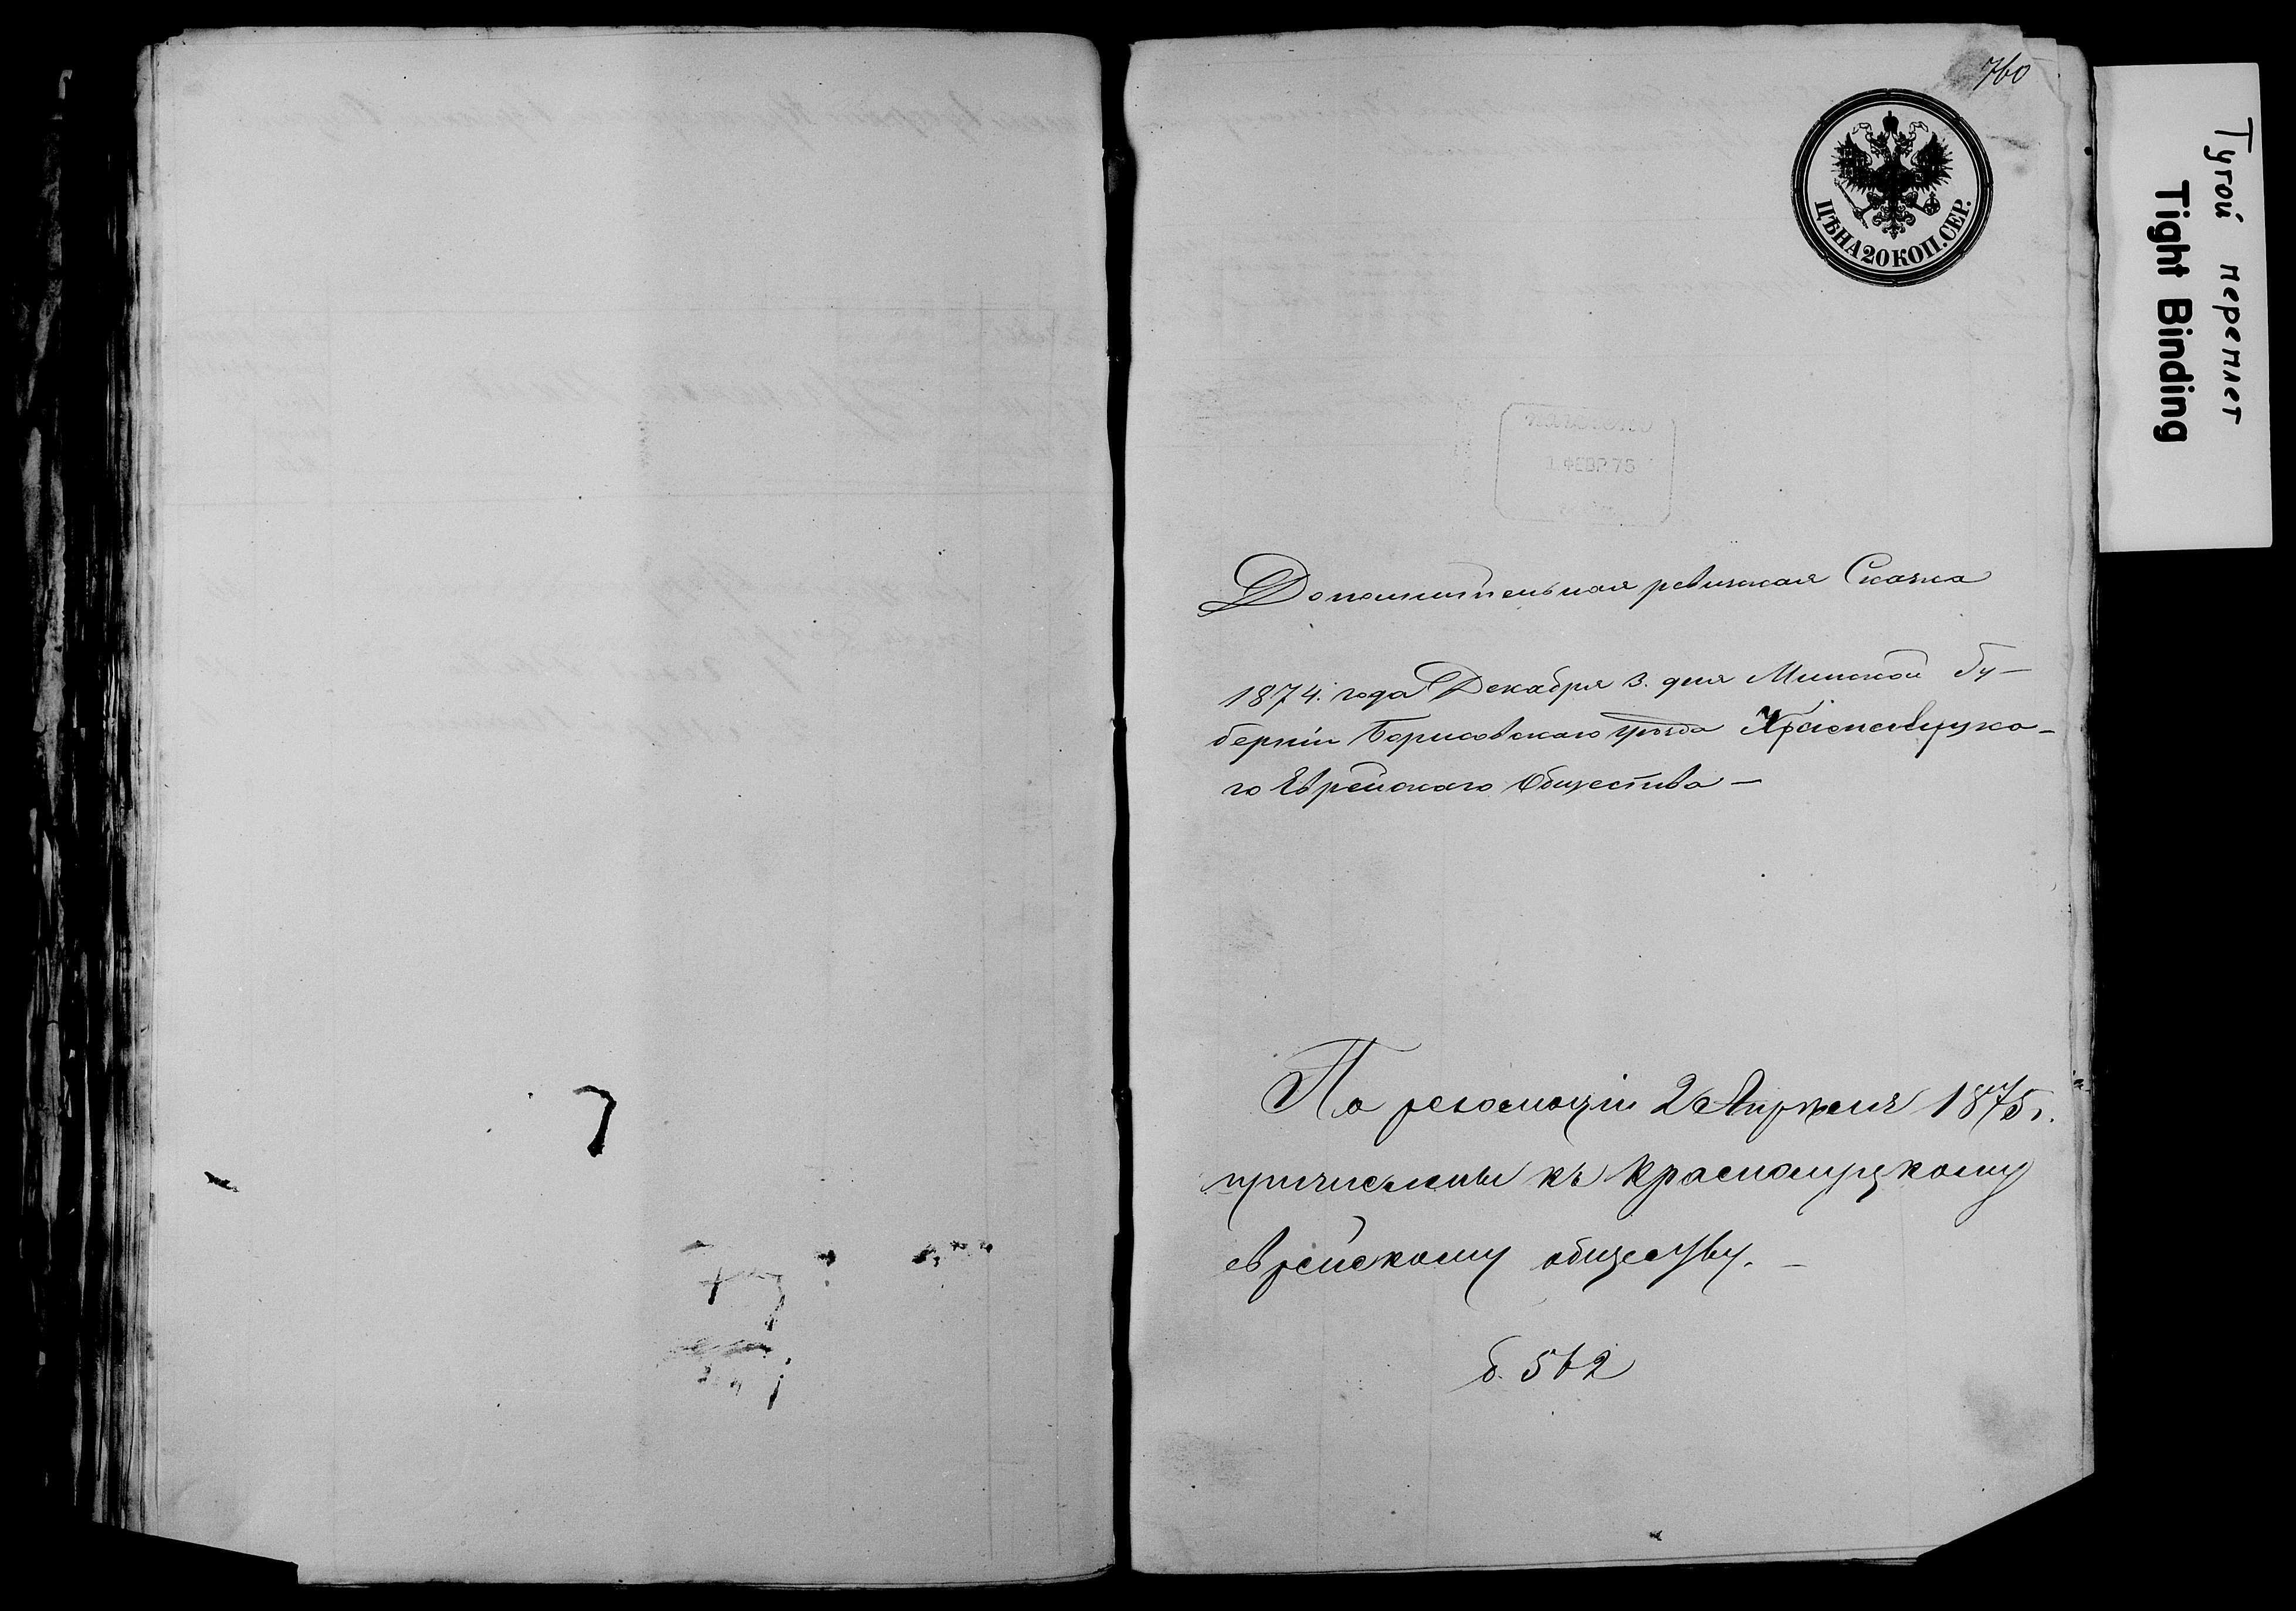 760
ЦѢНА 20 КОП. СЕР.
Тугой переплет
Tight Binding
1 ФЕВР. 75
Дополнительная ревизская Сказка
1874. года Декабря 3. дня Минской Гу-
берніи Борисовскаго уѣзда
го Еврейскаго Общества —
По резолюціи 2 Апрѣля 1875 г.
причислены къ Красногурскому
еврейскому обществу. —
б. 562